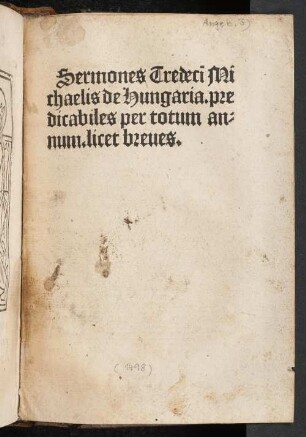 Angeb. 3)
Sermones Tredeci Mi
chaelis de Hungaria. pre
dicabiles per totum an-
num. licet breues.
(1498)